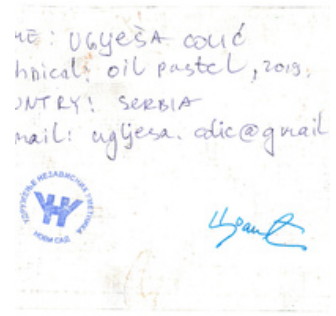 ME: UGLJEŠA COLIĆ
hnical: oil pastel, 2019.
UNTRY: SERBIA
mail: ugljesa.colic@gmail
УДРУЖЕЊЕ НЕЗАВИСНИХ УМЕТНИКА
НОВИ САД